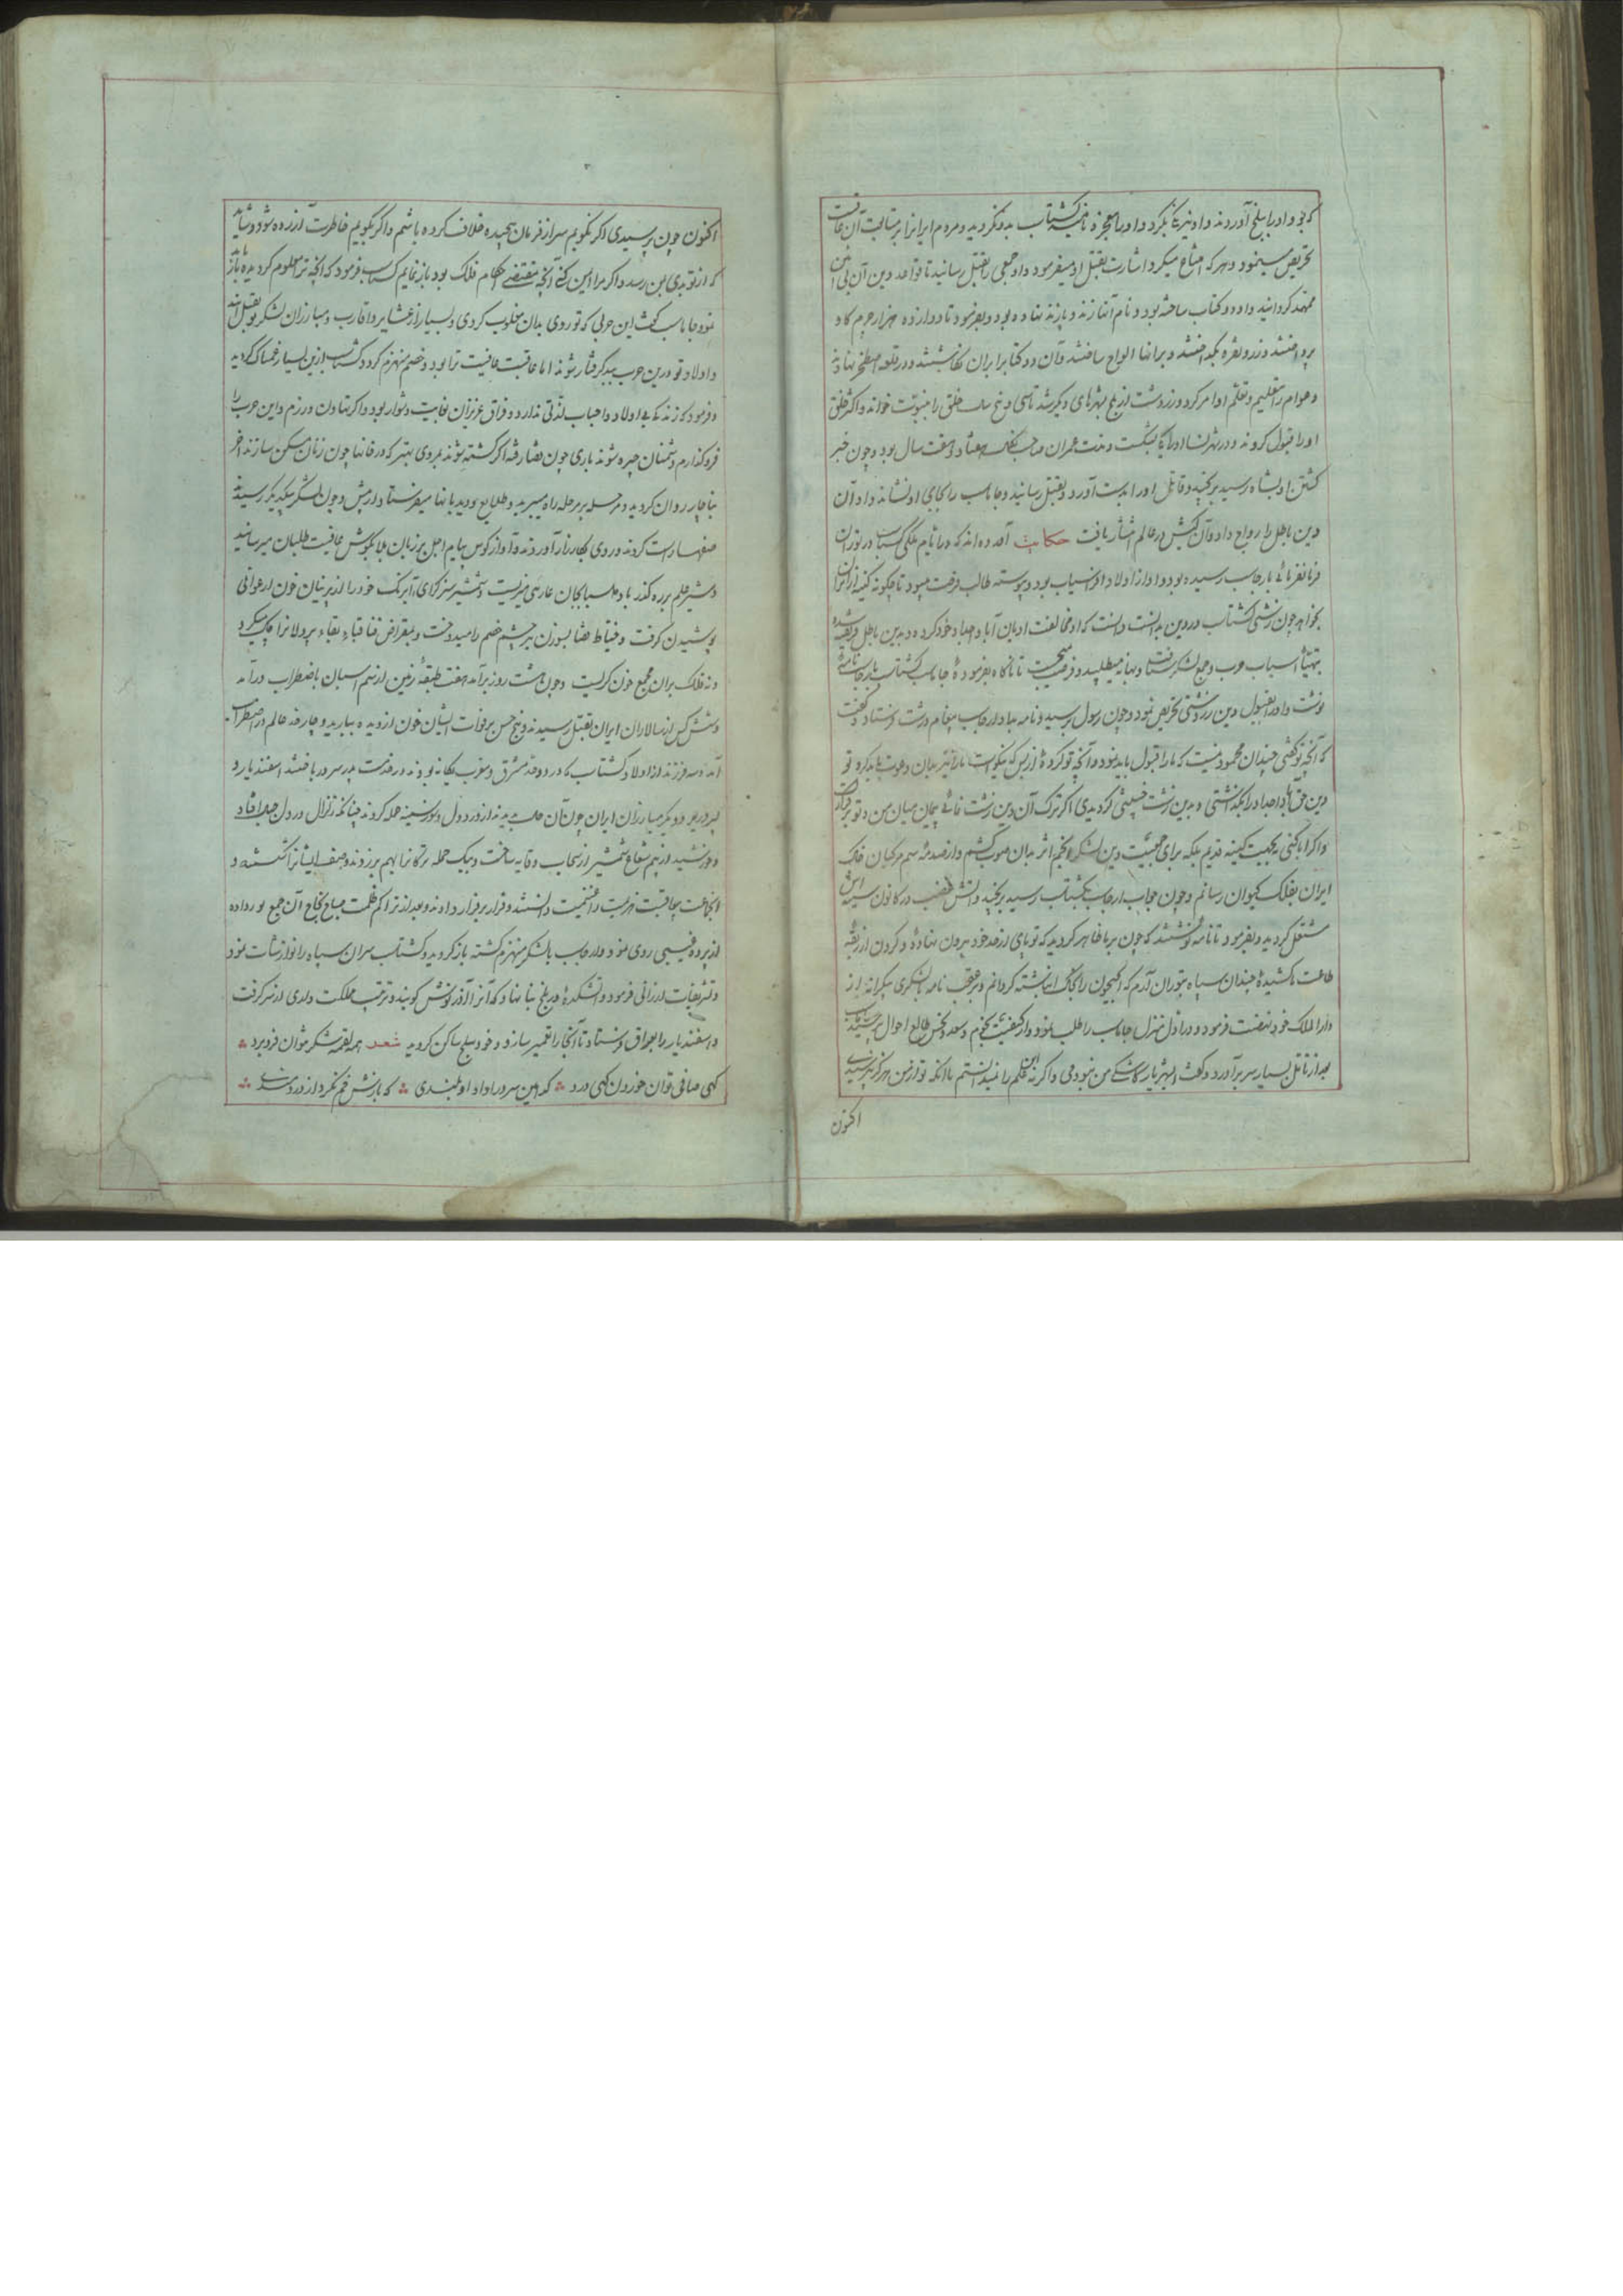 که بود او را ببلخ آوردند و او نیز بگرد و او معجز و گشتاسب بدو بگروید و مردم ایرانرا بر متابعت آن
تحریص مینمود و هر که امتناع میکرد اشارت بقتل او میفرمود و او جمعی را بقتل رسانید تا قواعد دین آن
ممهد گردانید و او دو کتاب ساخته بود و نام آن زند و پازند نهاده بود و بفرمود تا دوازده هزار چرم گاو
و زر و نقره بگداختند و برانها الواح ساختند و آن دو کتابرا بران نگاشتند و در قلعه اصطخر نهادند
و عوام را بتعلیم و تعلم اوامر کرد و زردشت از بلخ بشهرهای دیگر شد تا سی و پنج سال خلق را خواند و اکثر خلق
او را قبول کردند و در شهر او را بکشت و مدت عمران هفتاد و هفت سال بود و چون خبر
کشتن او بشاه رسید برنجید و قاتل او را بدست آورد و بقتل رسانید و جاماسب را بجای او نشاند و او آن
دین باطل را رواج داد و آن کیش در عالم انتشار یافت حکایت آورده‌اند که در ایام ملکی گشتاسب در توران
فرمانفرمائی بارجاسب رسیده بود و او از اولاد افراسیاب بود و پیوسته طالب فرصت میبود تا چگونه کینه از ایران
بخواهد چون زشتی گشتاسب در دین بدانست دانست که او مخالفت ادیان آبا و اجداد خود کرده و بدین باطل فریفته شده
بتهیئه اسباب حرب و جمع لشکر شتافت و بهانه میطلبید و فرصت میجست تا ناگاه بفرموده جاماسب گشتاسب بارجاسب نامه
نوشت و او را بقبول دین زردشتی تحریص نمود و چون رسول برسید و نامه بداد ارجاسب پیغام درشت فرستاد و گفت
که آنچه تو کفتی چندان محمود نیست که ما را قبول باید نمود و آنچه تو کرده از بس که نیکو است ما را نیز بدان دعوت باید کرد تو
دین حق آبا و اجداد را بگذاشتی و بدین زشت گردیدی اگر ترک آن دین زشت نمائی پیمان میان من و تو برقرار
و اگر ابا کنی نجهت کینه قدیم بلکه برای حمیت دین لشکر انجم اثر بدان صوب کشم و از صدمه سم مرکبان خاک
ایران بفلک کیوان رسانم و چون جواب ارجاسب بگشتاسب رسید برنجید و آتش غضب در کانون سینه اش
مشتعل گردید و بفرمود تا نامه نوشتند که چون بر ما ظاهر گردید که تو پای از حد خود بیرون نهاده و گردن از ربقه
طاعت کشیده چندان سپاه بتوران آرم که جیحون را بخاک انباشته گردانم و بر عقب نامه با لشکری بیکرانه از
دار الملک خود نهضت فرمود و در اول منزل جاماسب را طلب نمود و از کیفیت نجوم و سعد و نحس طالع احوال پرسید جاماسب
بعد از تامل بسیار سر برآورد و گفت ای شهریار کاشکی من نبودمی و اگر نه این علم را نمیدانستم یا آنکه تو از من هرگز نپرسیدی
اکنون
اکنون چون پرسیدی اگر نگویم سر از فرمان پیچیده خلاف کرده باشم و اگر بگویم خاطرت آزرده شود و شاید
که از تو بدی بمن رسد و اگر مرا ایمن کنی آنچه مقتضی احکام فلک بود باز نمایم گشتاسب فرمود که آنچه ترا معلوم گردیده باز باید
نمود جاماسب گفت این حربی که تو روی بدان مغلوب گردی و بسیار از عشایر و اقارب و مبارزان لشکر تو بقتل آیند
و اولاد تو درین حرب گرفتار شوند اما عاقبت عافیت ترا بود و خصم منهزم گردد گشتاسب ازین بسیار غمناک گردید
و فرمود که زندگی بی اولاد و احباب لذتی ندارد و فراق عزیزان بغایت دشوار بود و اگر تهاون ورزم و این حرب را
فرو گذارم دشمنان چیره شوند باری چون قضا رفته اگر کشته شوند بمردی بهتر که در خانها چون زنان مسکن سازند آخر
بناچار روان گردید و مرحله بر مرحله راه میبرید و طلایع و دیدبانها میفرستاد از پیش و چون لشکر بیکدیگر رسیدند
صفها راست کردند و روی بکارزار آوردند و آواز کوس پیام اجل بر زبان بلا بگوش عافیت طلبان میرسانید
و شیر علم بر ره گذر باد مسیاب بجان عاریتی میزیست و شمشیر سرگرای آبرنگ خود را از پرنیان خون ارغوانی
پوشیدن گرفت و خیاط قضا بسوزن تیر چشم خصم را میدوخت و بمقراض فنا قباء بقاء پردلانرا چاک میکرد
و نه فلک بران مجمع خون گریست و چون هشت روز برآمد هفت طبقه زمین از سم اسبان باضطراب درآمد
و شش کس از سالاران ایران بقتل رسیدند و پنج حس بر وفات ایشان خون از دیده ببارید و چار حد عالم در اضطراب
آمد و سه فرزند از اولاد گشتاسب که در دو حد مشرق و مغرب یگانه بودند در خدمت پدر سر در باختند اسفندیار و
پسر زریر و دیگر مبارزان ایران چون آن حالت بدیدند از درد دل و سوز سینه حمله کردند چنانکه زلزال در دل جبال افتاد
و خورشید از بیم شعاع شمشیر از سحاب وقایه ساخت و بیک حمله ترکانرا بهم برزدند و صف ایشانرا شکستند و
آنجماعت بعاقبت هزیمت را غنیمت دانستند و قرار بر فرار دادند و بعد از تراکم ظلمت صباح نجاح آن جمع نور داده
از پرده غیبی روی نمود و ارجاسب با لشکر منهزم گشته باز گردید و گشتاسب سران سپاه را نوازشات نمود
و تشریفات ارزانی فرمود و آتشکده در بلخ بنا نهاد که آنرا آذر نوش گویند و ترتیب مملکت داری از سر گرفت
و اسفندیار را بعراق فرستاد تا آنجا را تعمیر سازد و خود ببلخ ساکن گردید شعر همه لقمه شکر نتوان فرو برد
گهی صافی توان خوردن گهی درد که امین سرور او داد او بلندی که بازش خم نکرد از دردمندی